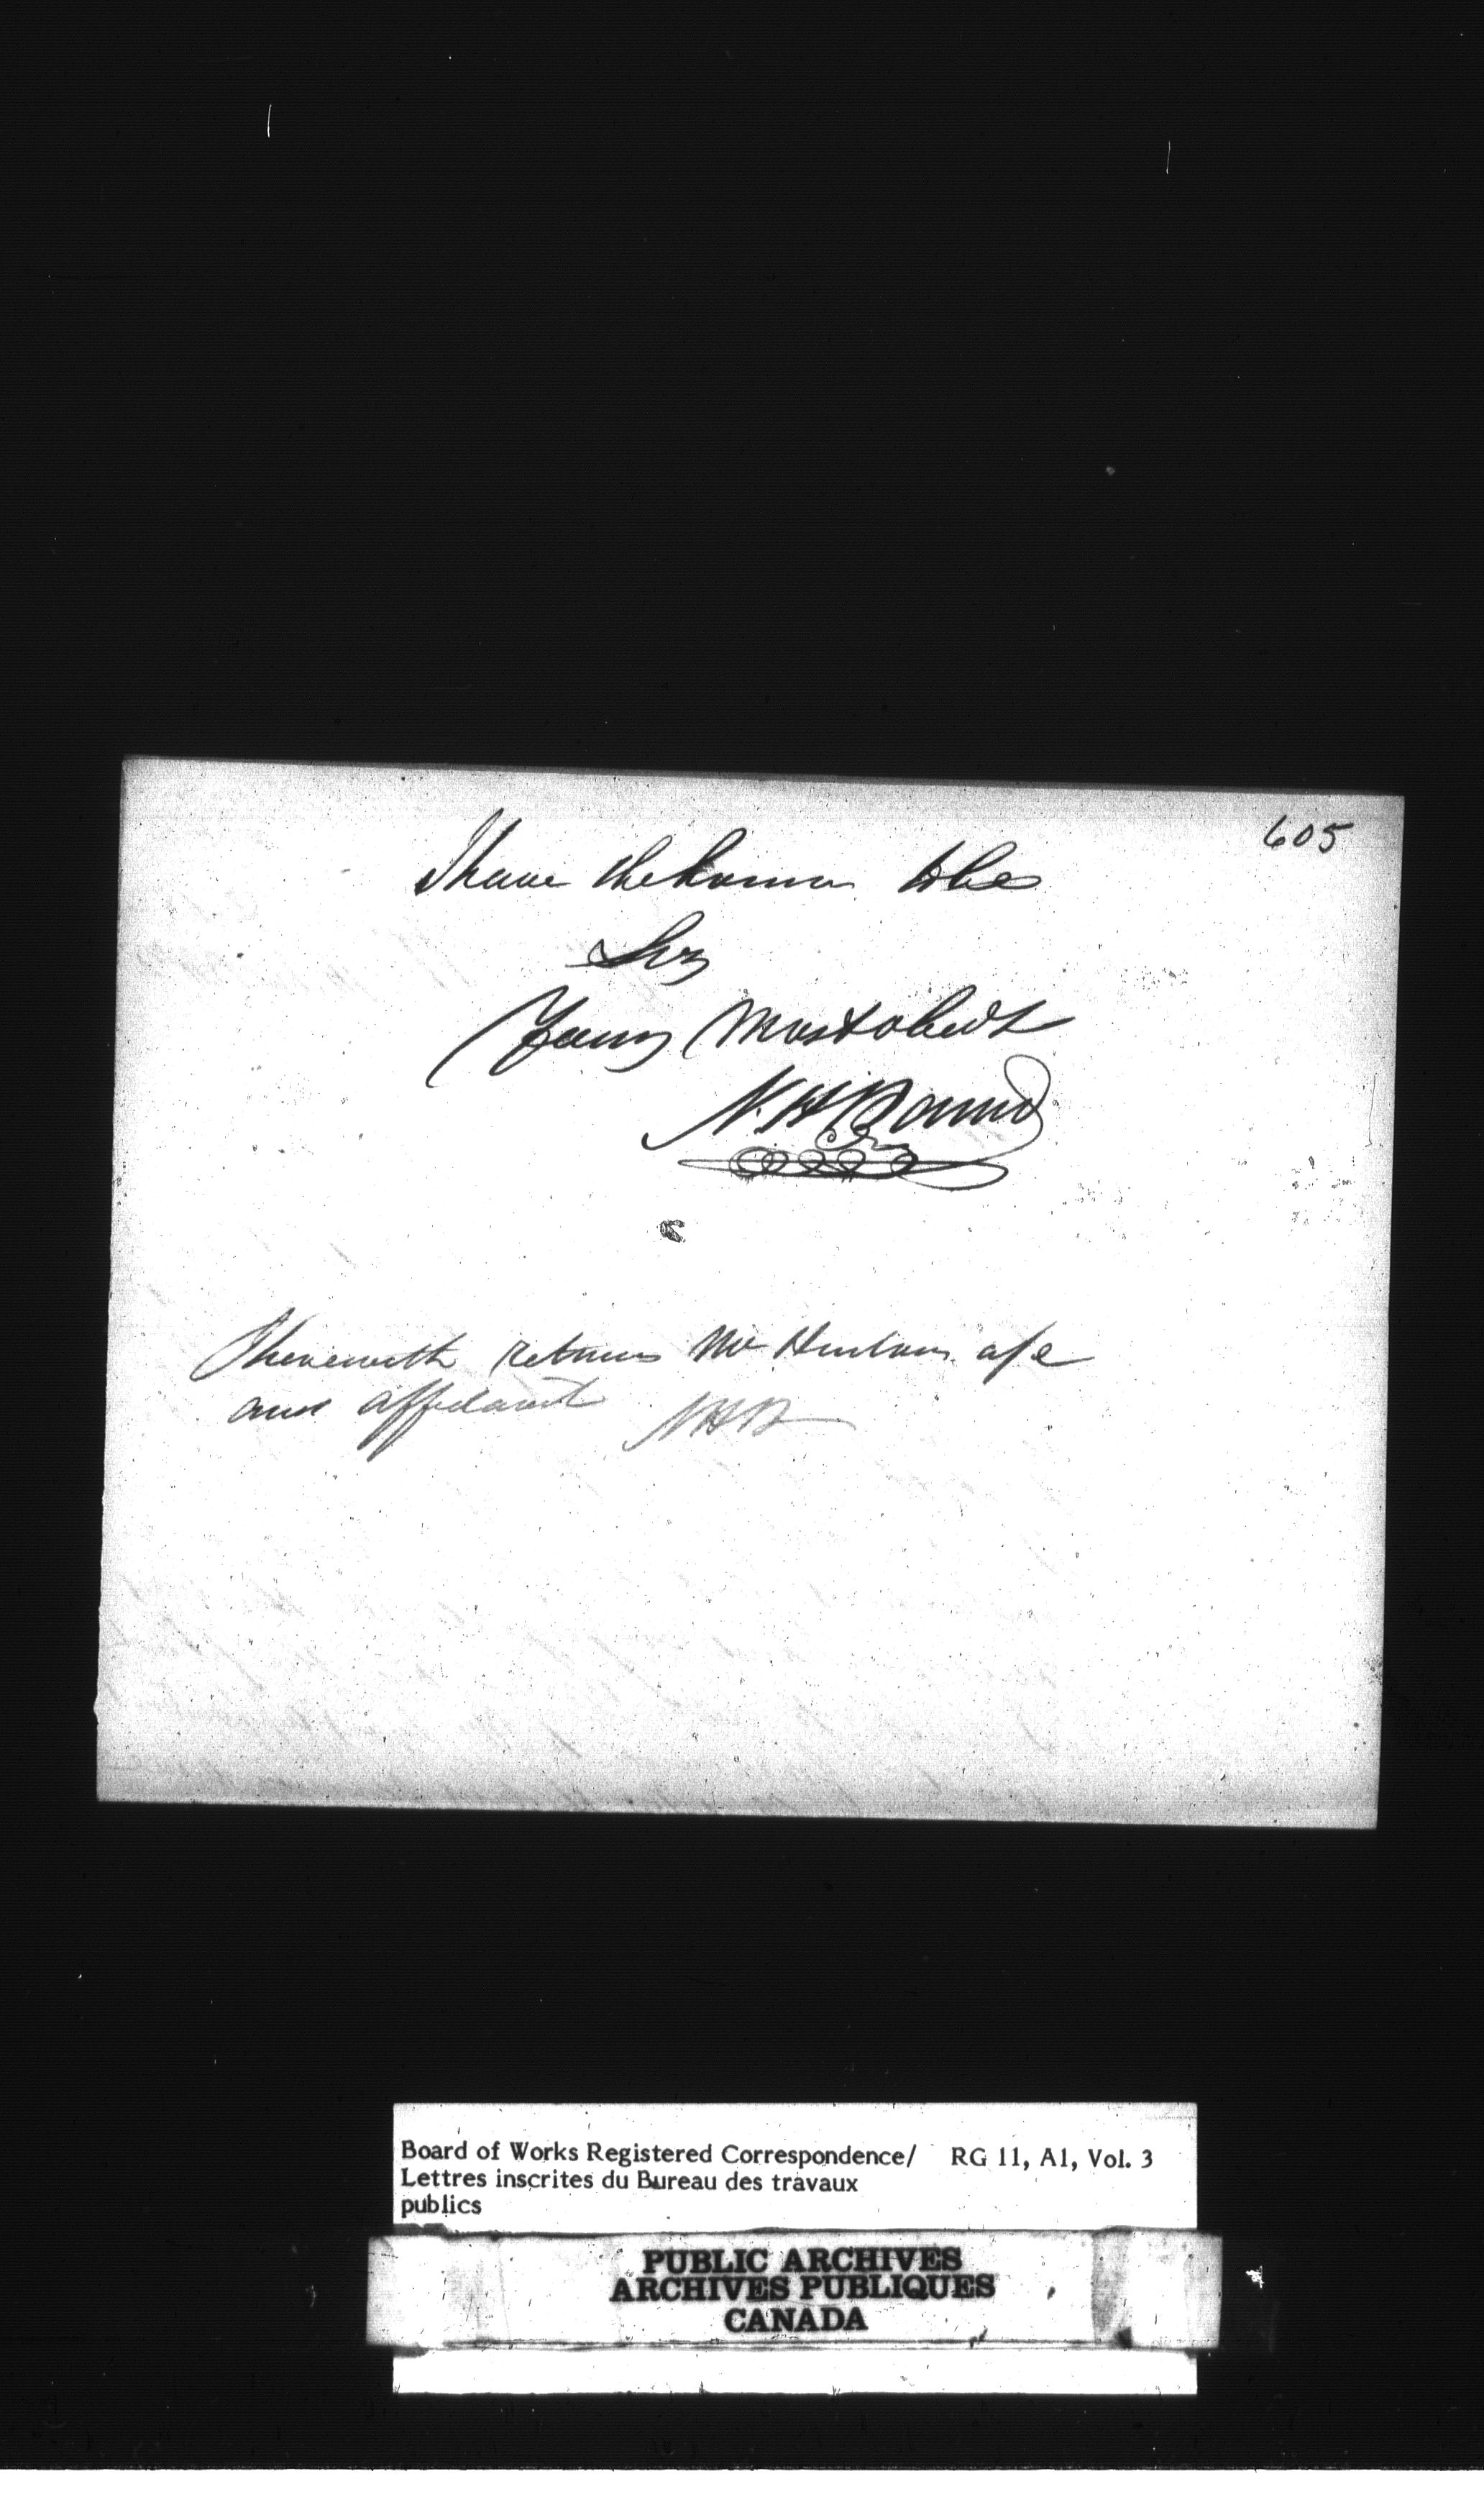 605
I have the honor to be
Sir
Yours most obedt
N. H. Baird
I herewith return Mr a/c
and affidavit NHB
Board of Works Registered Correspondence/ RG 11, A1, Vol. 3
Lettres inscrites du Bureau des travaux
publics
PUBLIC ARCHIVES
ARCHIVES PUBLIQUES
CANADA